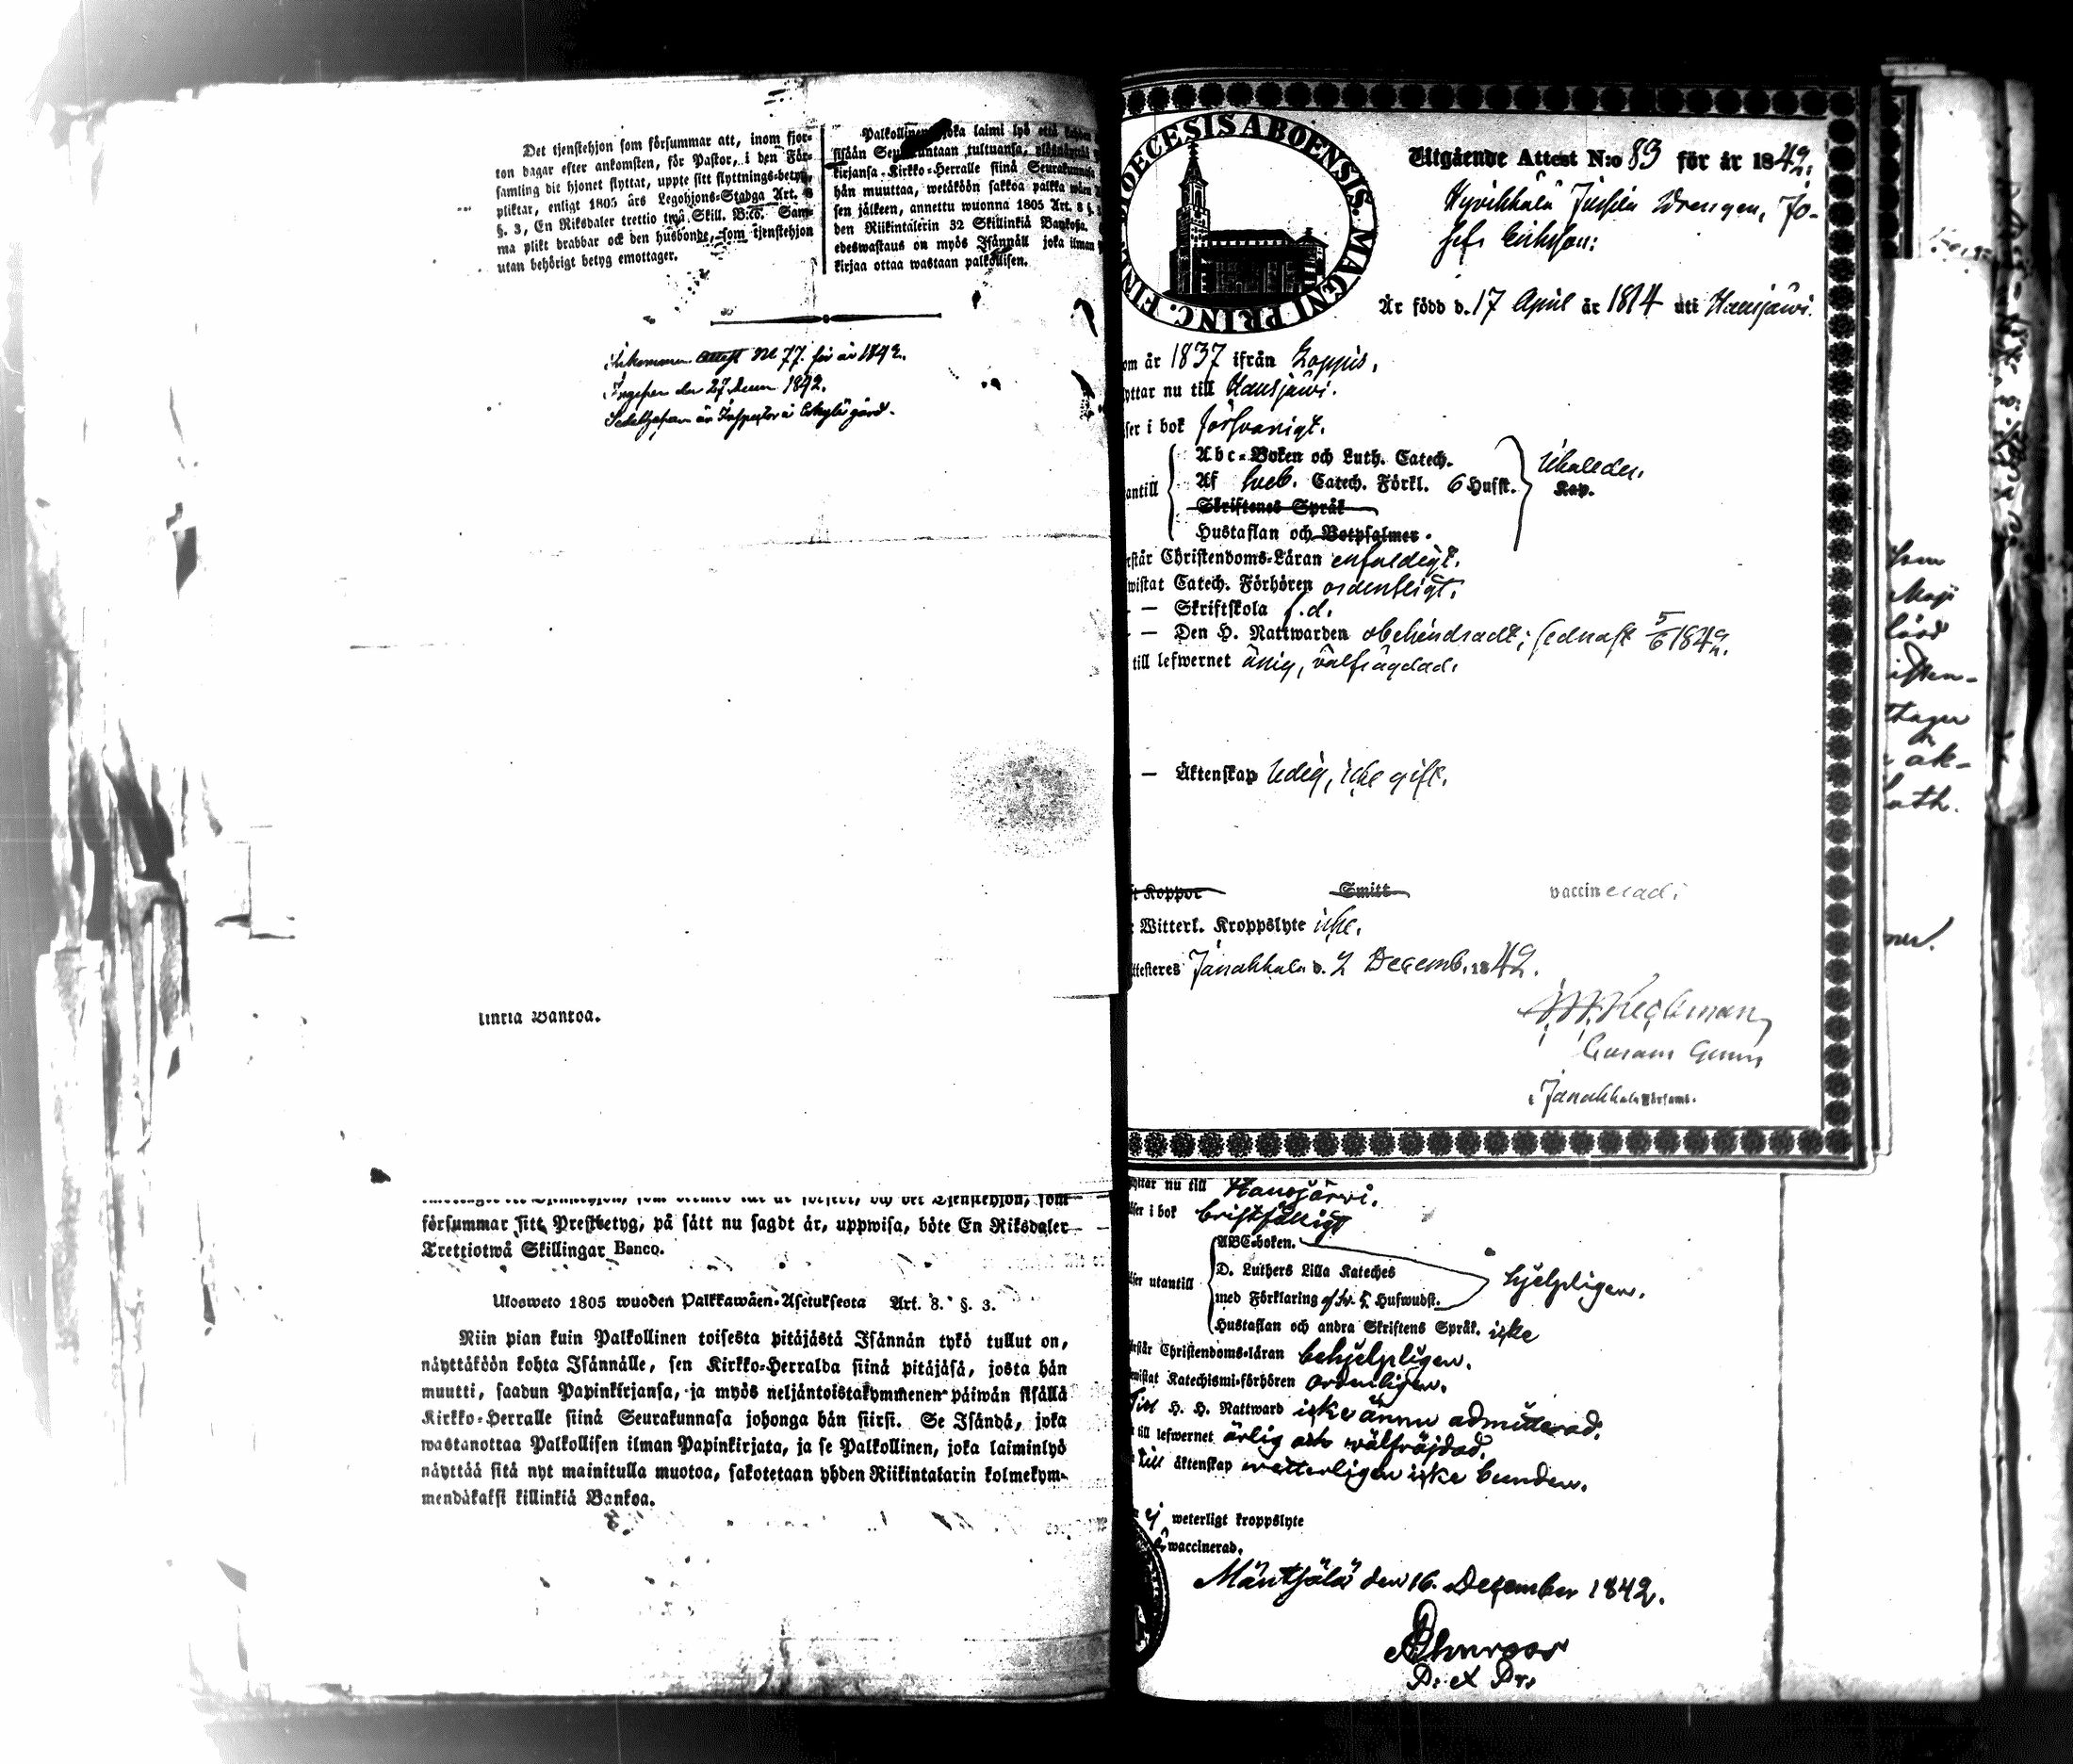 Det tjenstehjon som försummar att, inom fjor-
ton dagar efter ankomsten, för Pastor, i den För-
samling dit hjonet flyttat, uppte sitt flyttnings-betyg,
pliktar, enligt 1805 års Legohjons-Stadga Art. 8
§. 3, En Riksdaler trettio två Skill. B:co. Sam-
ma plikt drabbar ock den husbonde, som tjenstehjon
utan behörigt betyg emottager.
Palkollinen joka laimi lyö että kahden
sisään Seurakuntaan tultuansa, ylösnäyttää
kirjansa Kirkko-Herralle siinä Seurakunnasa
hän muuttaa, wetäköön sakkoa palkka wäen
sen jälkeen, annettu wuonna 1805 Art. 8 §.
den Riikintalerin 32 Skillinkiä Bankosa.
edeswastaus on myös Isännäll joka ilman
kirjaa ottaa wastaan palkollisen.
Inkommen Attest No 77. för år 1842.
1842.
gård.
linkiä Bankoa.
försummar sitt Prestbetyg, på sätt nu sagdt är, uppwisa, böte En Riksdaler
Trettiotwå Skillingar Banco.
Ulosweto 1805 wuoden Palkkawäen-Asetuksesta Art. 8. §. 3.
Niin pian kuin Palkollinen toisesta pitäjästä Isännän tykö tullut on,
näyttäköön kohta Isännälle, sen Kirkko-Herralda siinä pitäjäsä, josta hän
muutti, saadun Papinkirjansa, ja myös neljäntoistakymmenen päiwän sisällä
Kirkko-Herralle siinä Seurakunnasa johonga hän siirsi. Se Isändä, joka
wastanottaa Palkollisen ilman Papinkirjata, ja se Palkollinen, joka laiminlyö
näyttää sitä nyt mainitulla muotoa, sakotetaan yhden Riikintalarin kolmekym-
mendäkaksi killinkiä Bankoa.
DIOECESIS ABOENSIS. MAGNI PRINC. FINL.
Utgående Attest N:o 83 för år 1842.
Hyvikkälä Jussila Drengen, Jo-
sef Eriksson:
Är född d. 17 April år 1814 uti Hausjärwi.
om år 1837 ifrån Loppis,
yttar nu till Hausjärwi.
ser i bok försvarligt.
Abc-Boken och Luth. Catech.
antill Af Sveb. Catech. Förkl. 6 Hufst. Kap.
Skriftenes Språk
Hustaflan och Botpsalmer.
rstår Christendoms-Läran enfaldigt.
wistat Catech. Förhören ordentligt.
— Skriftskola s. d.
— Den H. Nattwarden obehindradt; sednast 5/6 1842.
till lefwernet ärlig, välfrägdad.
— Äktenskap ledig, icke gift.
t Koppor Smitt vaccinerad.
Witterl. Kroppslyte icke.
ttesteres Janakkala d. 2 Decemb. 1842.
i Janakkala Församl.
yttar nu till Hausjärvi.
äser i bok bristfälligt
ABC-boken.
D. Luthers Lilla Kateches
äser utantill med Förklaring af Sv. 5 Hufwudst. hjelpligen.
Hustaflan och andra Skriftens Språk. icke
rstår Christendoms-läran behjelpligen.
ewistat Katechismi-förhören ordentligen.
Till H. H. Nattward icke ännu admitterad.
till lefwernet ärlig och wälfräjdad.
till äktenskap wetterligen icke bunden.
ej weterligt kroppslyte
waccinerad.
Mäntsälä den 16. December 1842.